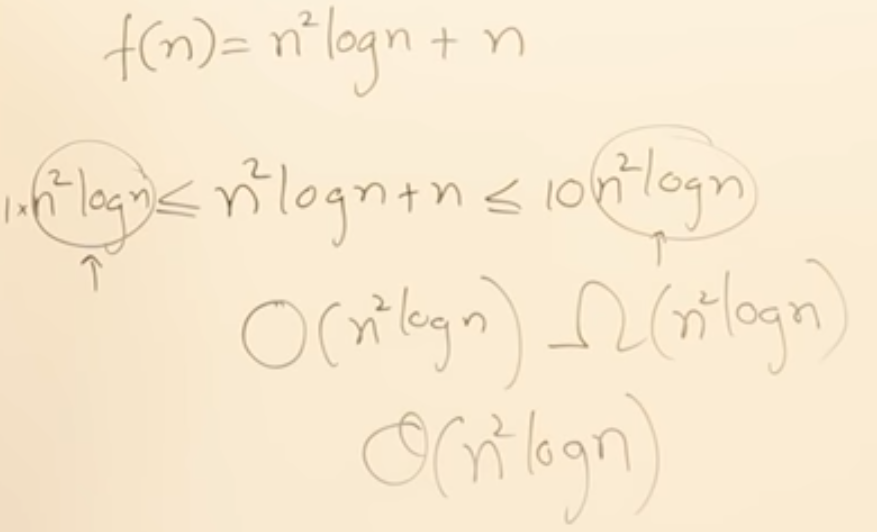 f(n) = n² log n + n
1×n² log n ≤ n² log n + n ≤ 10 n² log n
↑ ↑
O(n² log n) Ω(n² log n)
Θ(n² log n)